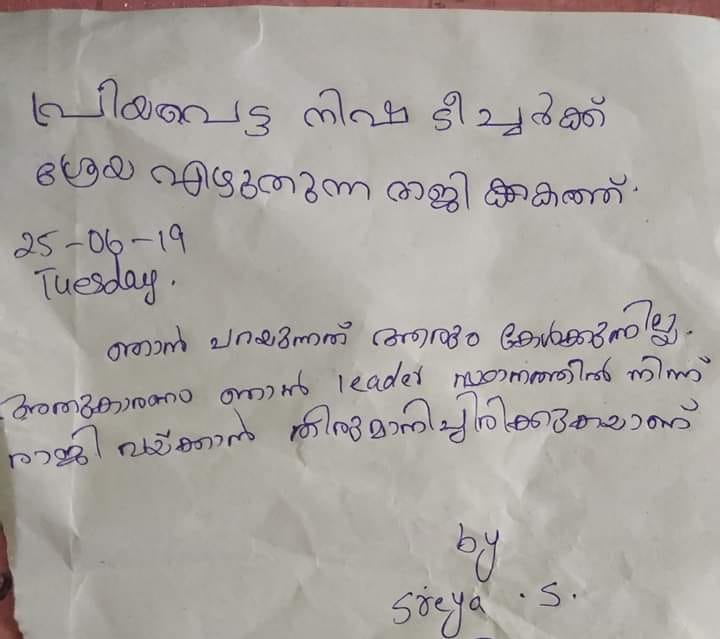 പ്രിയപെട്ട നിഷ ടീച്ചർക്ക്
ശ്രേയ എഴുതുന്ന രാജി ക്കത്ത്.
25-06-19
Tuesday.
ഞാൻ പറയുന്നത് ആരും കേൾക്കുന്നില്ല.
അതുകാരണം ഞാൻ leader സ്ഥാനത്തിൽ നിന്ന്
രാജി വയ്ക്കാൻ തിരുമാനിച്ചിരിക്കുകയാണ്
by
Sreya . S.